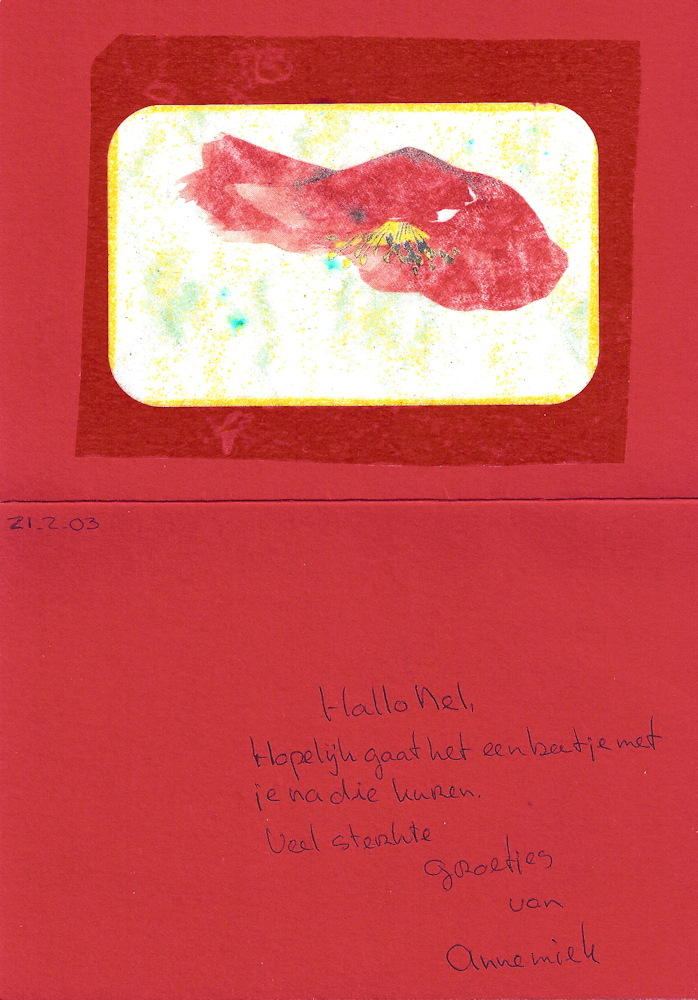 21-2-03
Hallo Nel,
Hopelijk gaat het een beetje met
je na die kuren.
Veel sterkte
groetjes
van
Annemiek